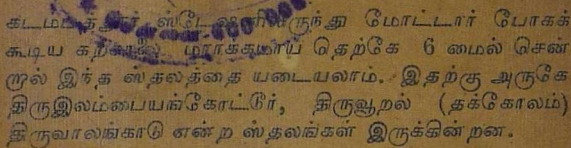 கடம்பத்தூர் ஸ்டேஷனிலிருந்து மோட்டார் போகக்
கூடிய கற்சாலை மார்க்கமாய் தெற்கே 6 மைல் சென்
றால் இந்த ஸ்தலத்தை யடையலாம். இதற்கு அருகே
திருஇலம்பையங்கோட்டூர், திருவூறல் (தக்கோலம்)
திருவாலங்காடு என்ற ஸ்தலங்கள் இருக்கின்றன.